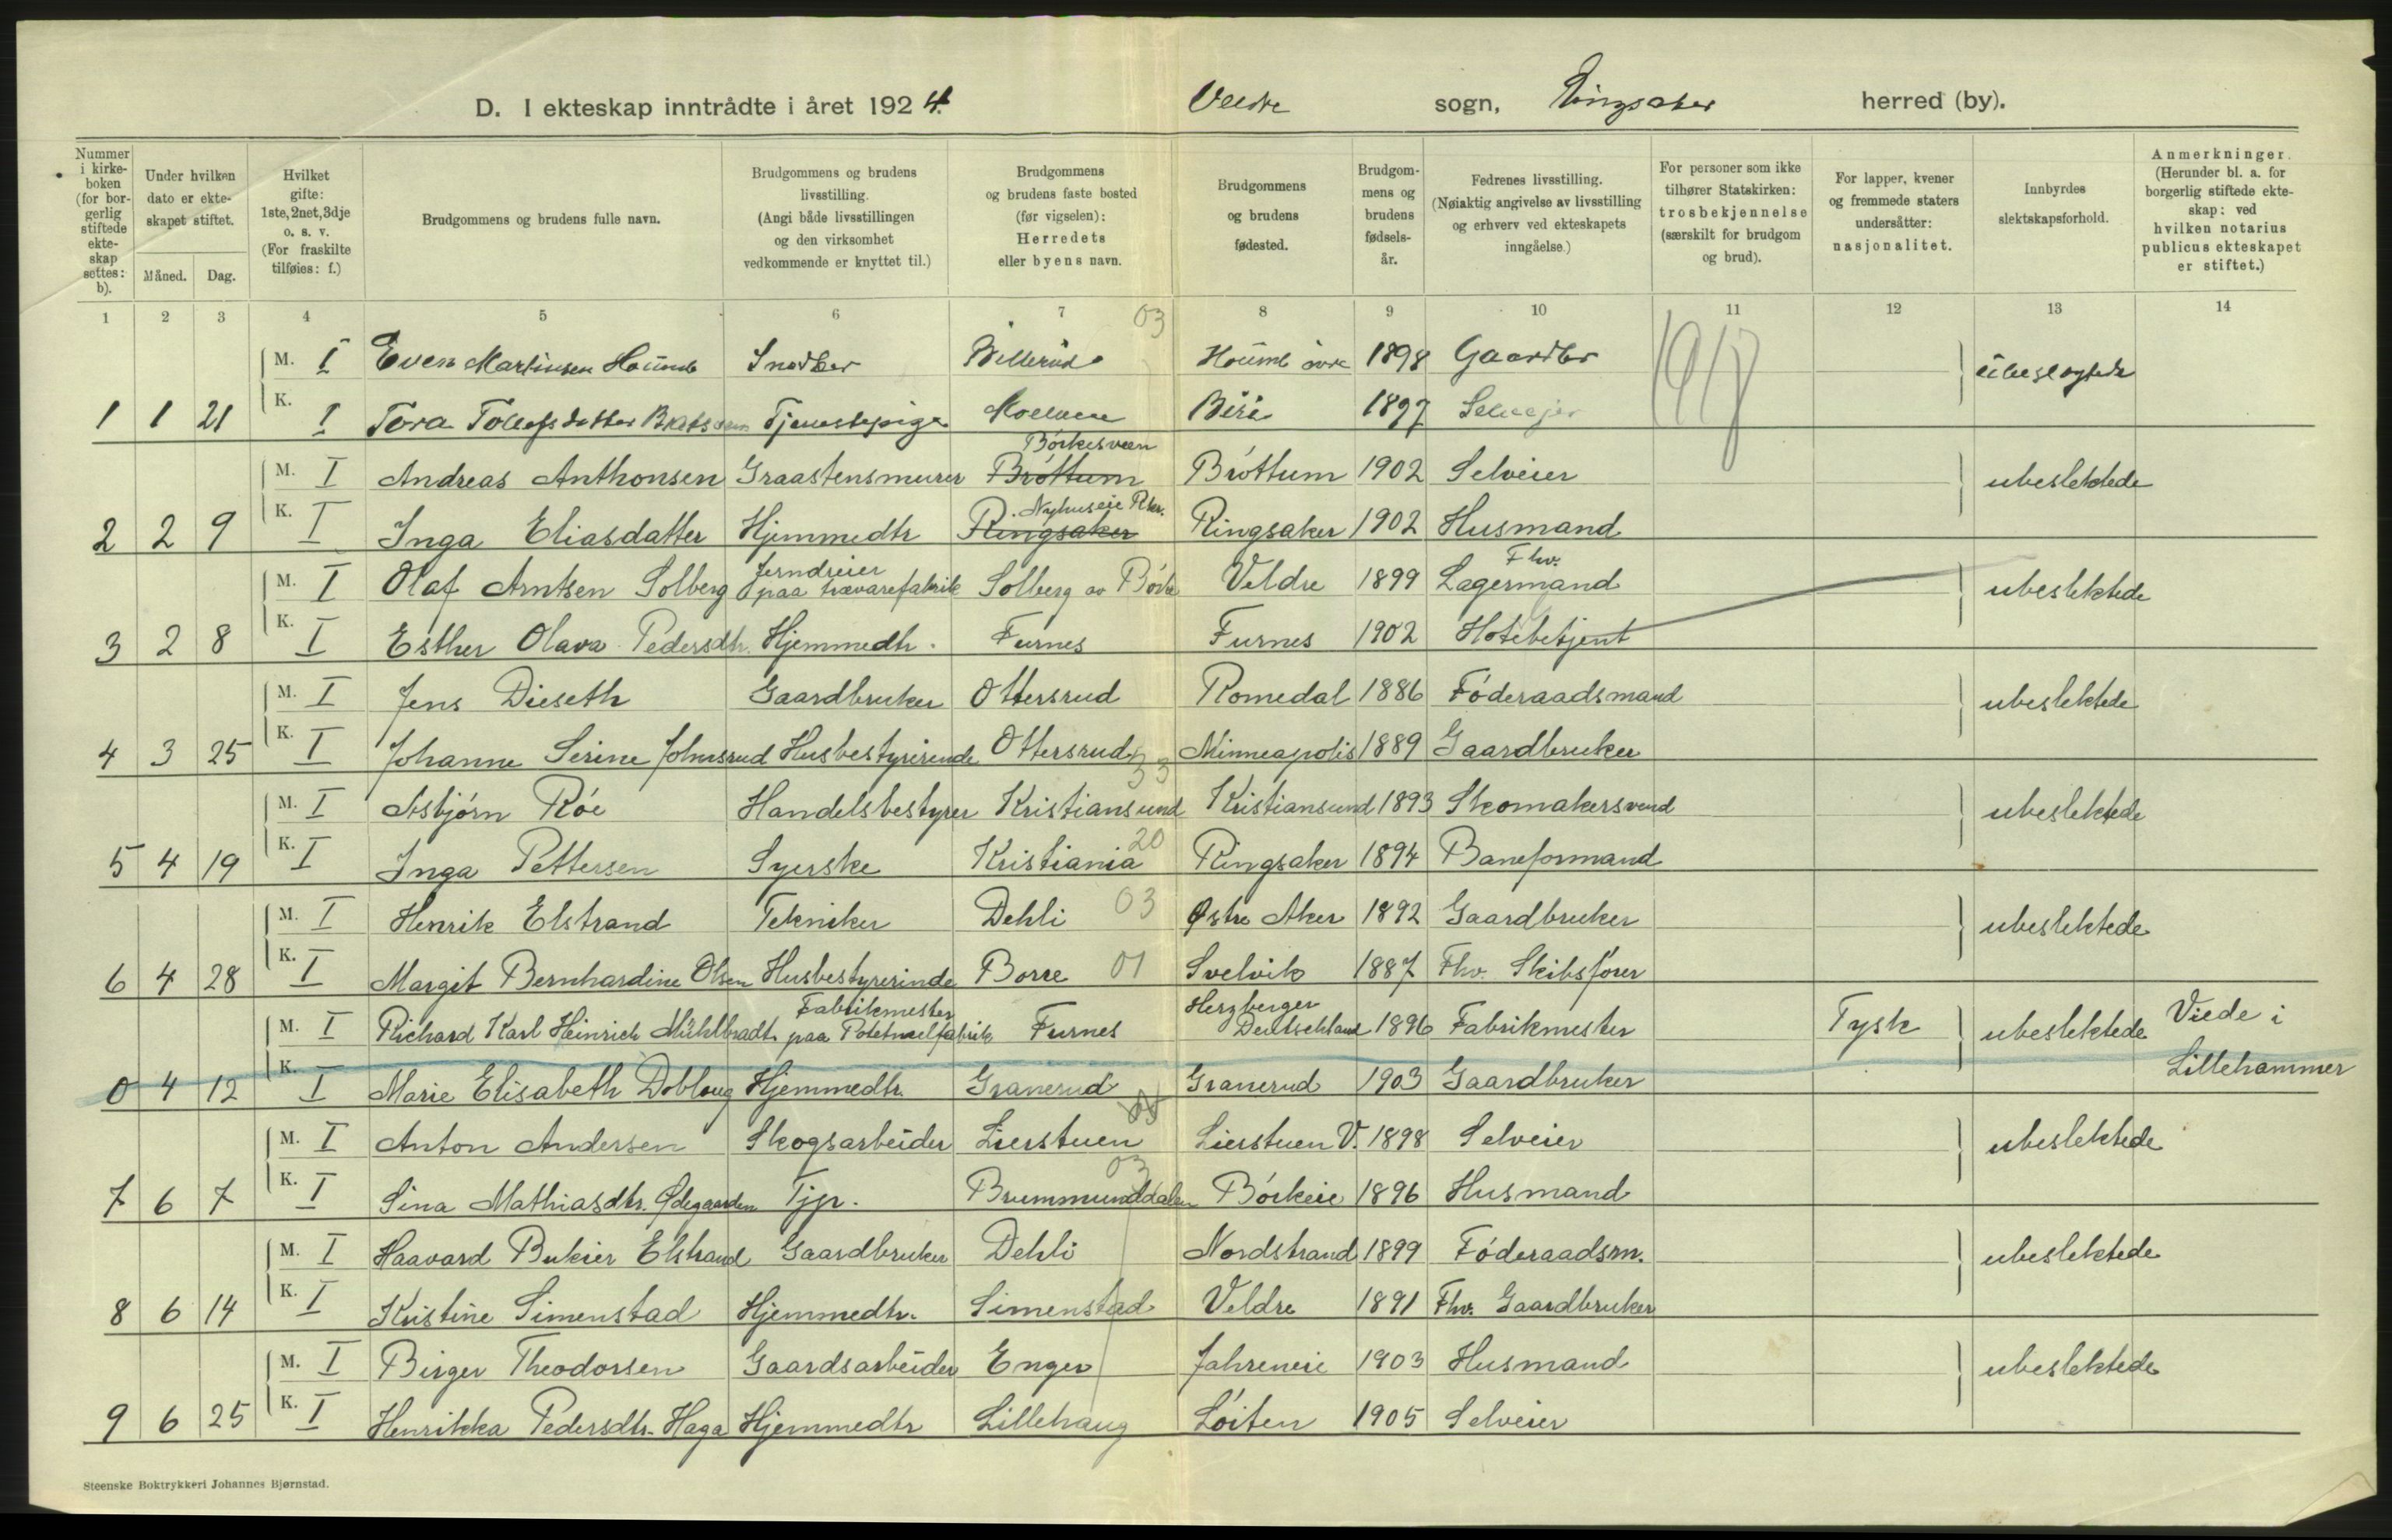 D. I ekteskap inntrådte i året 1924. Veldre sogn, Ringsaker herred (by).
Nummer i kirkeboken (for borgerlig stiftede ekteskap settes: b).
Under hvilken dato er ekteskapet stiftet.
Måned. Dag.
Hvilket gifte: 1ste, 2net, 3dje o. s. v. (For fraskilte tilføies: f.)
Brudgommens og brudens fulle navn.
Brudgommens og brudens livsstilling. (Angi både livsstillingen og den virksomhet vedkommende er knyttet til.)
Brudgommens og brudens faste bosted (før vigselen): Herredets eller byens navn.
Brudgommens og brudens fødested.
Brudgommens og brudens fødselsår.
Fedrenes livsstilling. (Nøiaktig angivelse av livsstilling og erhverv ved ekteskapets inngåelse.)
For personer som ikke tilhører Statskirken: trosbekjennelse (særskilt for brudgom og brud).
For lapper, kvener og fremmede staters undersåtter: nasjonalitet.
Innbyrdes slektskapsforhold.
Anmerkninger. (Herunder bl. a. for borgerlig stiftede ekteskap: ved hvilken notarius publicus ekteskapet er stiftet.)
1 2 3 4 5 6 7 8 9 10 11 12 13 14
03
M. I Even Martinsen Houmb Snedker Houmb 1898 Gaardbr
1 1 21 K. I Tora Tollefsdatter Tjenestepige Moelven Biri 1897 Selveier
Børkesveen
M. I Andreas Anthonsen Graastensmurer Brøttum Brøttum 1902 Selveier ubeslektede
Nyhuseie Rker.
2 2 9 K. I Inga Eliasdatter Hjemmedtr Ringsaker Ringsaker 1902 Husmand
Jerndreier Fhv.
M. I Olaf Arntsen Solberg paa trævarefabrik Solberg av Børke Veldre 1899 Lagermand ubeslektede
3 2 8 K. I Esther Olava Pedersdtr. Hjemmedtr. Furnes Furnes 1902 Hotelbetjent
M. I Jens Dieseth Gaardbruker Ottersrud Romedal 1886 Føderaadsmand ubeslektede
4 3 25 K. I Johanne Serine Johnsrud Husbestyrerinde Ottersrud Minneapolis 1889 Gaardbruker
M. I Asbjørn Røe Handelsbestyrer Kristiansund Kristiansund 1893 Skomakersvend ubeslektede
5 4 19 K. I Inga Pettersen Syerske Kristiania 20 Ringsaker 1894 Baneformand
M. I Henrik Elstrand Tekniker Dehli 03 Østre Aker 1892 Gaardbruker ubeslektede
6 4 28 K. I Margit Bernhardine Olsen Husbestyrerinde Borre 01 Svelvik 1887 Fhv. Skibsfører
Fabrikmester Herzberger
M. I Richard Karl Heinrich Mühlbradt paa Potetmelfabrik Furnes Deutschland 1896 Fabrikmester Tysk ubeslektede Viede i
0 4 12 K. I Marie Elisabeth Dobloug Hjemmedtr. Granerud Granerud 1903 Gaardbruker Lillehammer
M. I Anton Andersen Skogsarbeider Lierstuen Lierstuen V. 1898 Selveier ubeslektede
03
7 6 7 K. I Sina Mathiasdtr. Ødegaarden Tjp. Brummunddalen Børkeie 1896 Husmand
M. I Haavard Bukier Elstrand Gaardbruker Dehli Nordstrand 1899 Føderaadsm. ubeslektede
8 6 14 K. I Kristine Simenstad Hjemmedtr. Simenstad Veldre 1891 Fhv. Gaardbruker
M. I Birger Theodorsen Gaardsarbeider Enger Jahreneie 1903 Husmand ubeslektede
9 6 25 K. I Henrikka Pedersdtr. Haga Hjemmedtr Lillehaug Løiten 1905 Selveier
Steenske Boktrykkeri Johannes Bjørnstad.